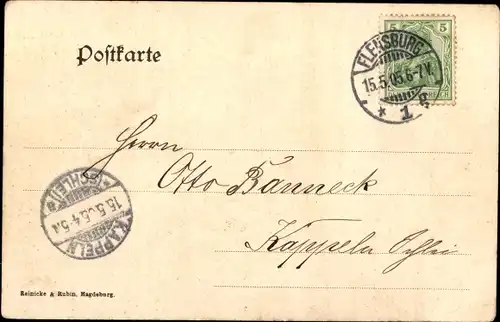 Postkarte
5 5
FLENSBURG
15.5.05.6-7V.
* 1 g
Herrn
Otto Banneck
Kappeln Schlei
KAPPELN
15.5.05.4-5N
* (SCHLEI) *
Reinicke & Rubin, Magdeburg.